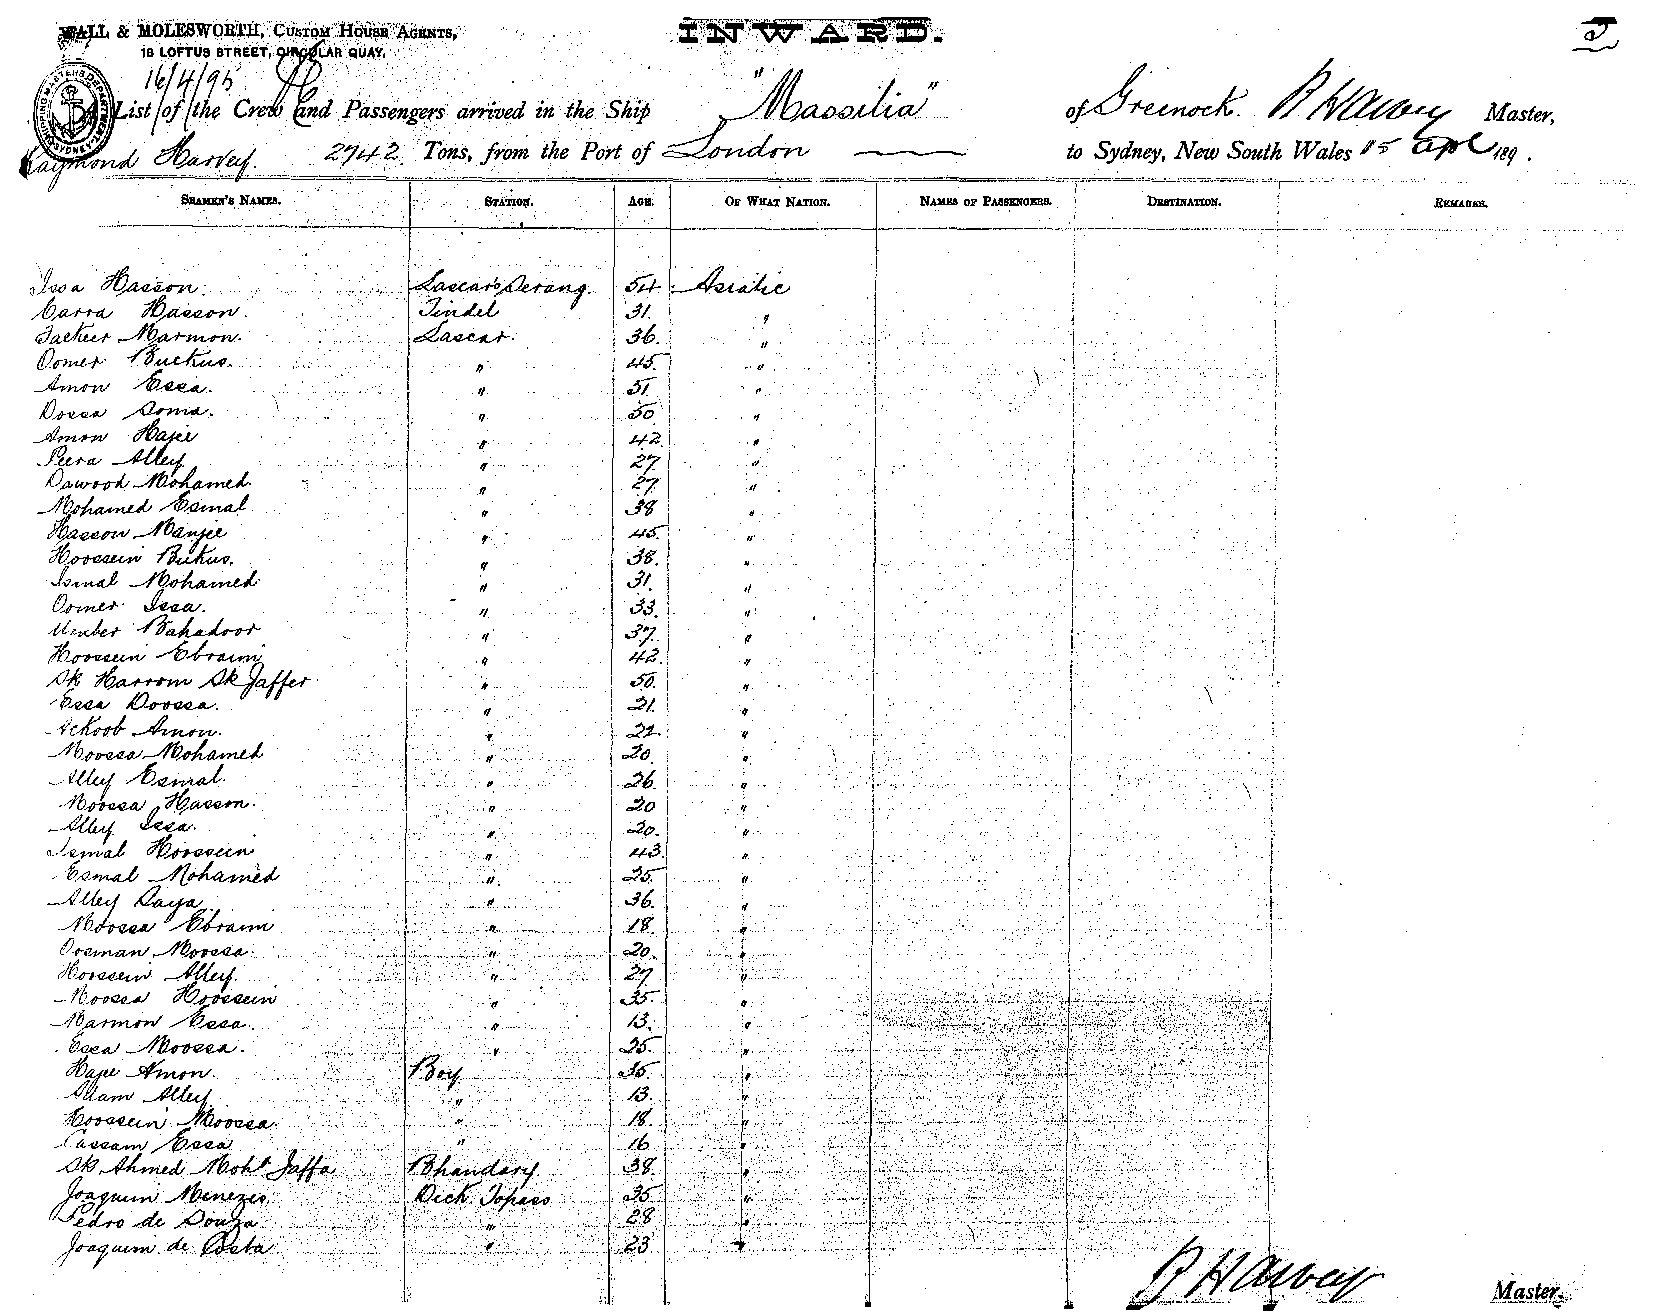 WALL & MOLESWORTH, CUSTOM HOUSE AGENTS,
18 LOFTUS STREET, CIRCULAR QUAY.
INWARD.
16/4/95
A List of the Crew and Passengers arrived in the Ship "Massilia" of Greenock. R Harvey Master,
Raymond Harvey. 2742 Tons, from the Port of London to Sydney, New South Wales 15 Apl 189 .
SEAMEN'S NAMES. STATION. AGE. OF WHAT NATION. NAMES OF PASSENGERS. DESTINATION. REMARKS.
Issa Hasson. Lascar Serang. 54 Asiatic
Carra Hasson. Tindel 31. "
Fackeer Marmon. Lascar. 36. "
Oomer Buckus. " 45. "
Amon Essa. " 51. "
Dossa Soma. " 50 "
Amon Hajee " 42. "
Peera Alley " 27 "
Dawood Mohamed. " 27. "
Mohamed Esmal " 38 "
Hasson Manjee " 45. "
Hoossein Bukus. " 38. "
Ismal Mohamed " 31. "
Oomer Issa. " 33. "
Bahadoor " 37. "
Hoossein Ebraim " 42. "
Sk Harrom Sk Jaffer " 50. "
Essa Doossa. " 21. "
Ackoob Amon. " 22. "
Moossa Mohamed " 20. "
Alley Esmal. " 26. "
Moossa Hasson. " 20 "
Alley Issa. " 20. "
Ismal Hoossein " 43. "
Esmal Mohamed " 25. "
Alley Daya " 36. "
Moossa Ebraim " 18. "
Oosman Moossa. " 20. "
Hoossein Alley. " 27 "
Moossa Hoossein " 35. "
Marmon Essa. " 13. "
Essa Moossa. " 25. "
Hajee Amon. Boy 35. "
Adam Alley " 13. "
Hoossein Moossa. " 18. "
Cassam Essa " 16 "
Sk Ahmed Mohd Jaffa Bhandary 38. "
Joaquim Menezes. Deck Topass 35 "
Pedro de Souza " 28 "
Joaquim de Costa " 23 "
R Harvey Master.